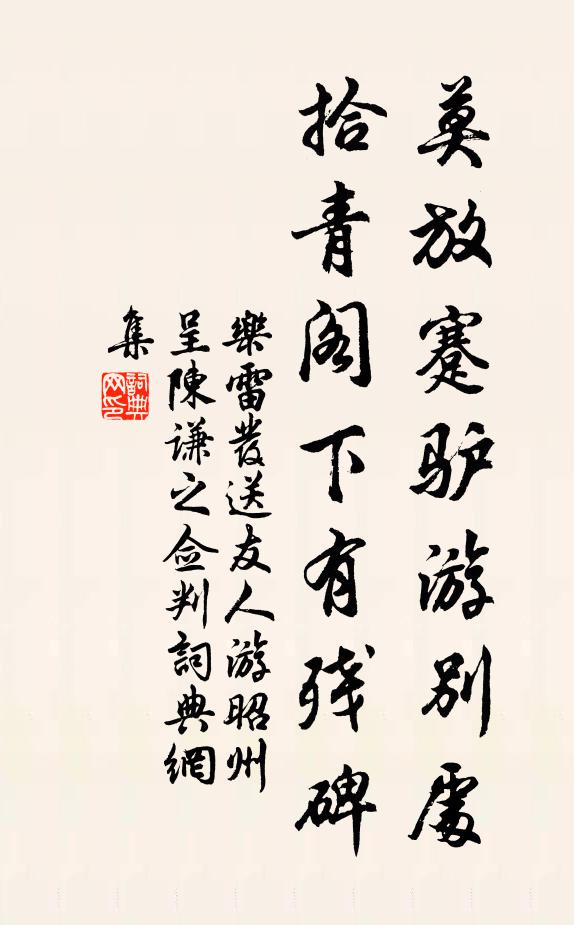 莫放蹇驴游别處
拾青阁下有残碑
樂雷發送友人游昭州
呈陳謙之佥判詞典網
集
詞典
网印